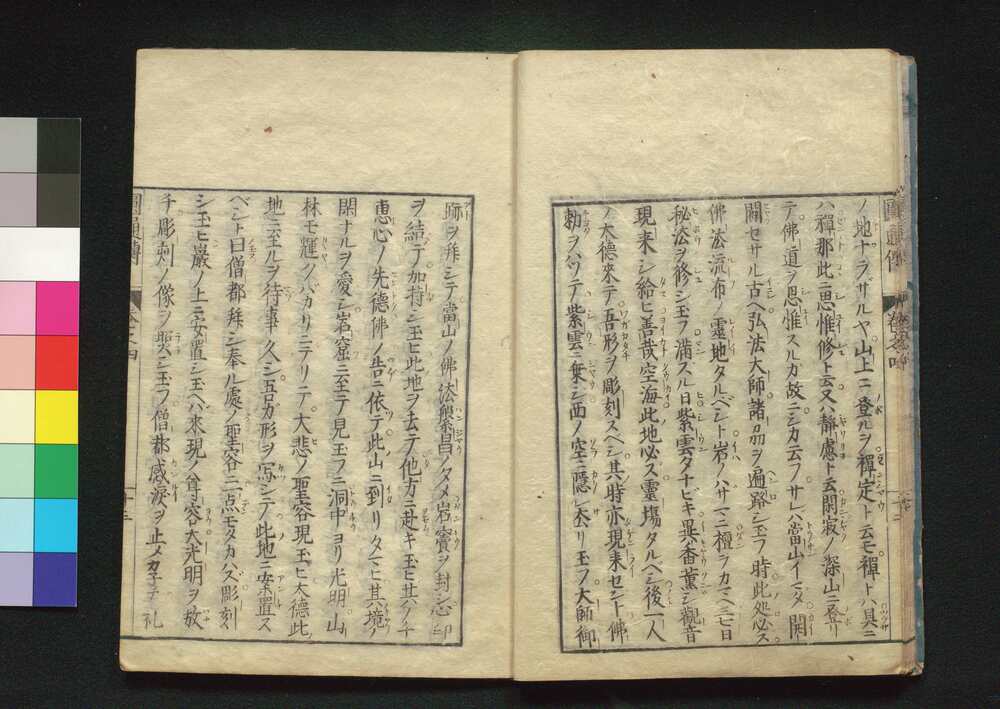 ノ地ナラザルヤ山上ニ登ルヲ禪定ト云モ禪トハ具ニ
ハ禪那此ニ思惟修ト云又ハ靜慮ト云閑寂ノ深山ニ登リ
テ佛道ヲ思惟スルカ故ニシカ云フサレハ當山イマタ開
闢セサル古ヘ弘法大師諸州ヲ遍路シ玉フ時此処必ス
佛法流布ノ靈地タルベシト岩ノハサマニ檀ヲカマヘ三七日
秘法ヲ修シ玉フ滿スル日紫雲タナヒキ異香薫シ觀音
現来シ給ヒ善哉空海此地必ス靈塲タルベシ後一人
ノ大德來テ吾形ヲ彫刻スベシ其時亦現来セント佛
勅ヲハツテ紫雲ニ乗シ西ノ空ニ隱レ玉フ大師御
跡ヲ拜シテ當山ノ佛法繁昌ノタメ岩竇ヲ封シ印
ヲ結テ加持シ玉ヒ此地ヲ去テ他方ニ赴キ玉ヒ其ノチ
恵心ノ先德佛ノ告ニ依テ此山ニ到リタマヒ其境ノ
閑ナルヲ愛シ岩窟ニ至テ見玉フニ洞中ヨリ光明山
林モ輝クバカリニテリテ大悲ノ聖容現玉ヒ大德此
地ニ至ルヲ待事久シ吾ガ形ヲ写シテ此地ニ安置ス
ベシト曰僧都拜シ奉ル處ノ聖容ニ一点モタカハズ彫刻
シ玉ヒ巖ノ上ニ安置シ玉ヘバ来現ノ尊容大光明ヲ放
チ彫刻ノ像ヲ照シ玉フ僧都感涙ヲ止メカ子テ礼